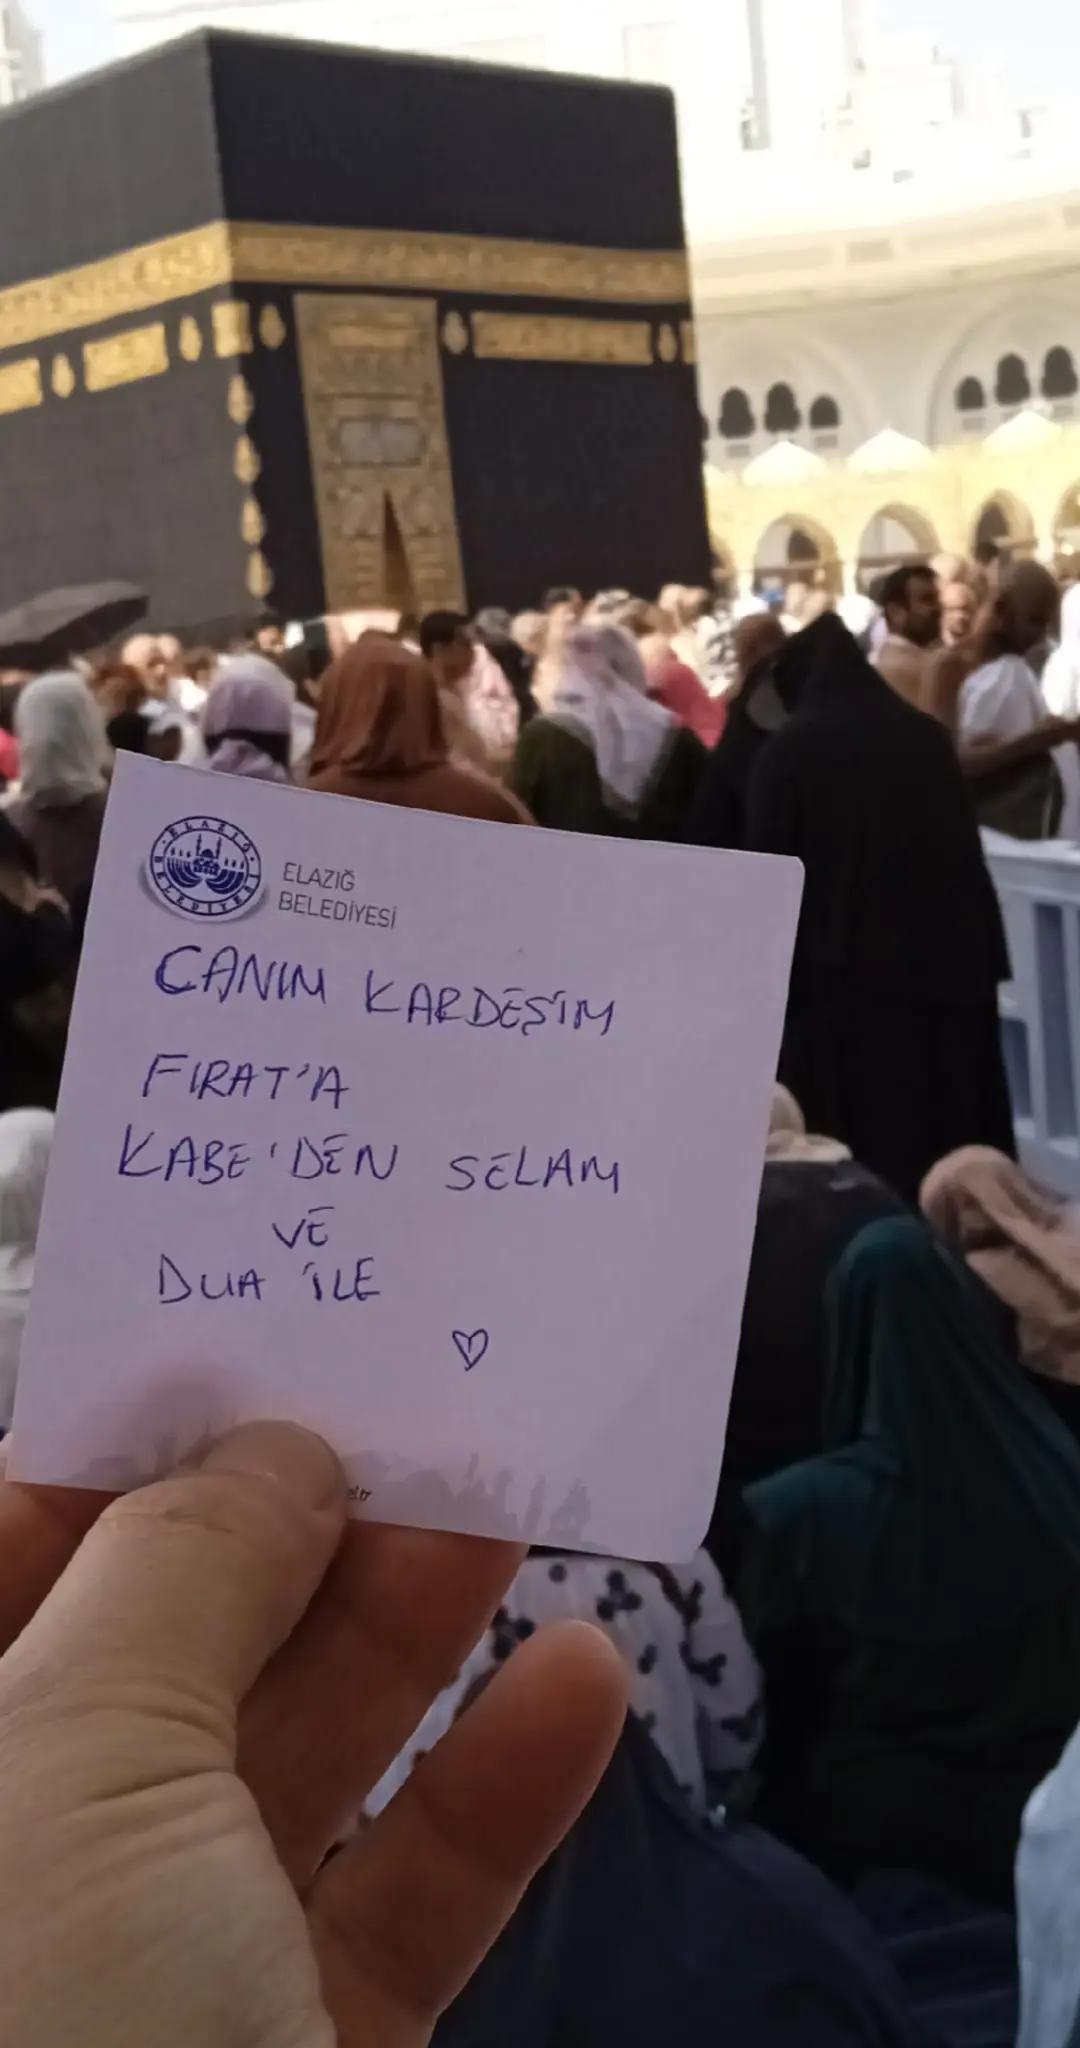 ELAZIĞ
BELEDİYESİ
ELAZIĞ BELEDİYESİ
CANIM KARDEŞİM
FIRAT'A
KABE'DEN SELAM
VE
DUA İLE